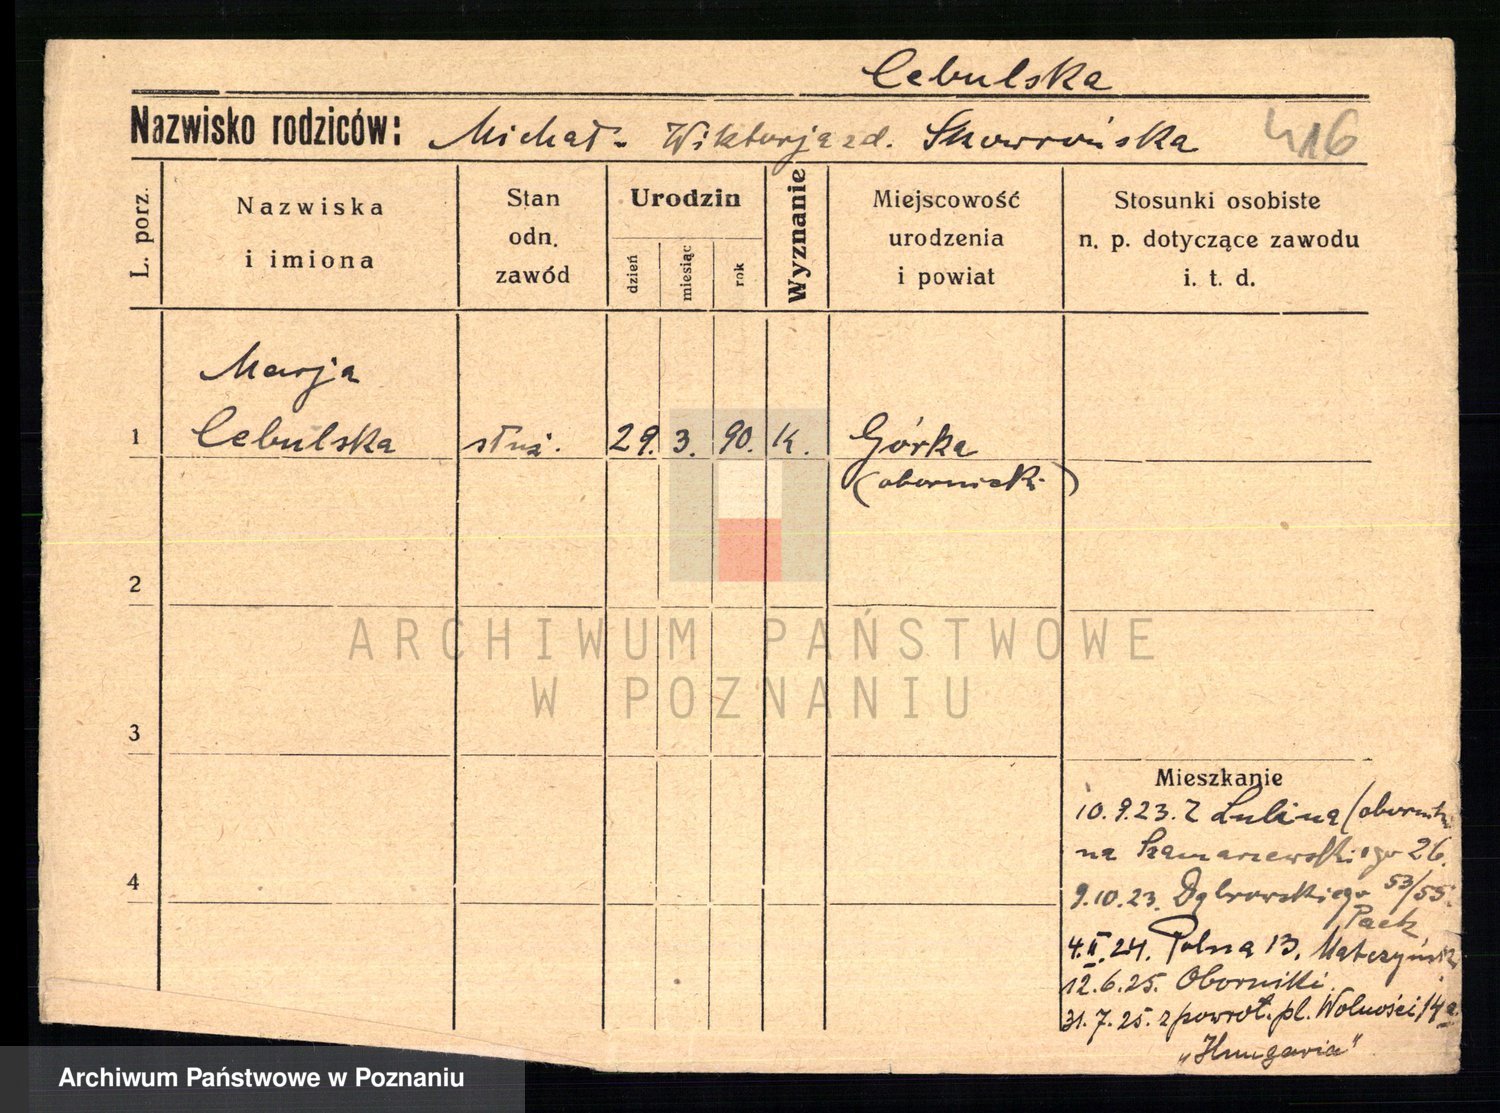 Cebulska
Nazwisko rodziców: Michał - Wiktorja zd. Skowrońska 416
L. porz.
Nazwiska
i imiona
Stan
odn.
zawód
Urodzin
dzień
miesiąc
rok
Wyznanie
Miejscowość
urodzenia
i powiat
Stosunki osobiste
n. p. dotyczące zawodu
i. t. d.
Marja
1 Cebulska służ. 29. 3. 90. K. Górka
(obornicki)
2
ARCHIWUM PAŃSTWOWE
W POZNANIU
3
Mieszkanie
10.9.23. Z Lulina (obornik
na Szamarzewskiego 26.
4
9.10.23. Dąbrowskiego 53/55.
4.II.24. Polna 13.
12.6.25. Oborniki.
31.7.25. z powrot. pl. Wolności 14a
„Hungaria"
Archiwum Państwowe w Poznaniu